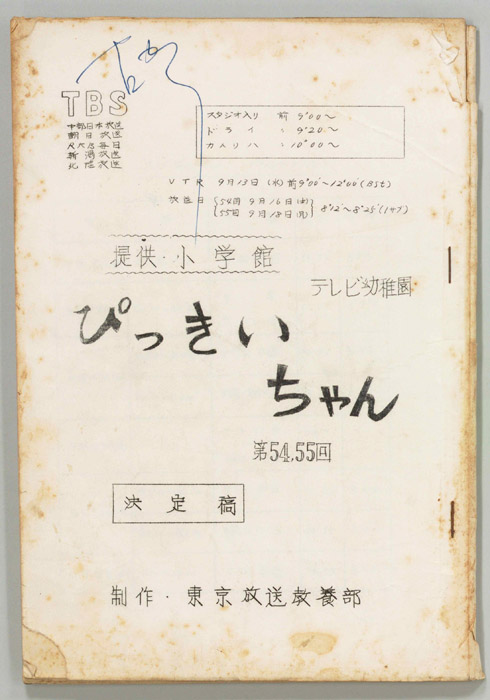 TBS
中部日本放送
朝日放送
RKB毎日
新潟放送
北陸放送
スタジオ入り 前 9°00'〜
ドライ 〃 9°20'〜
カメリハ 〃 10°00'〜
VTR 9月13日(水)前9°00'〜12°00'(BSt)
放送日 54回 9月16日(土)
55回 9月18日(月) 8°12'〜8°25'
提供・小学館
テレビ幼稚園
ぴっきい
ちゃん
第54,55回
決定稿
制作・東京放送教養部